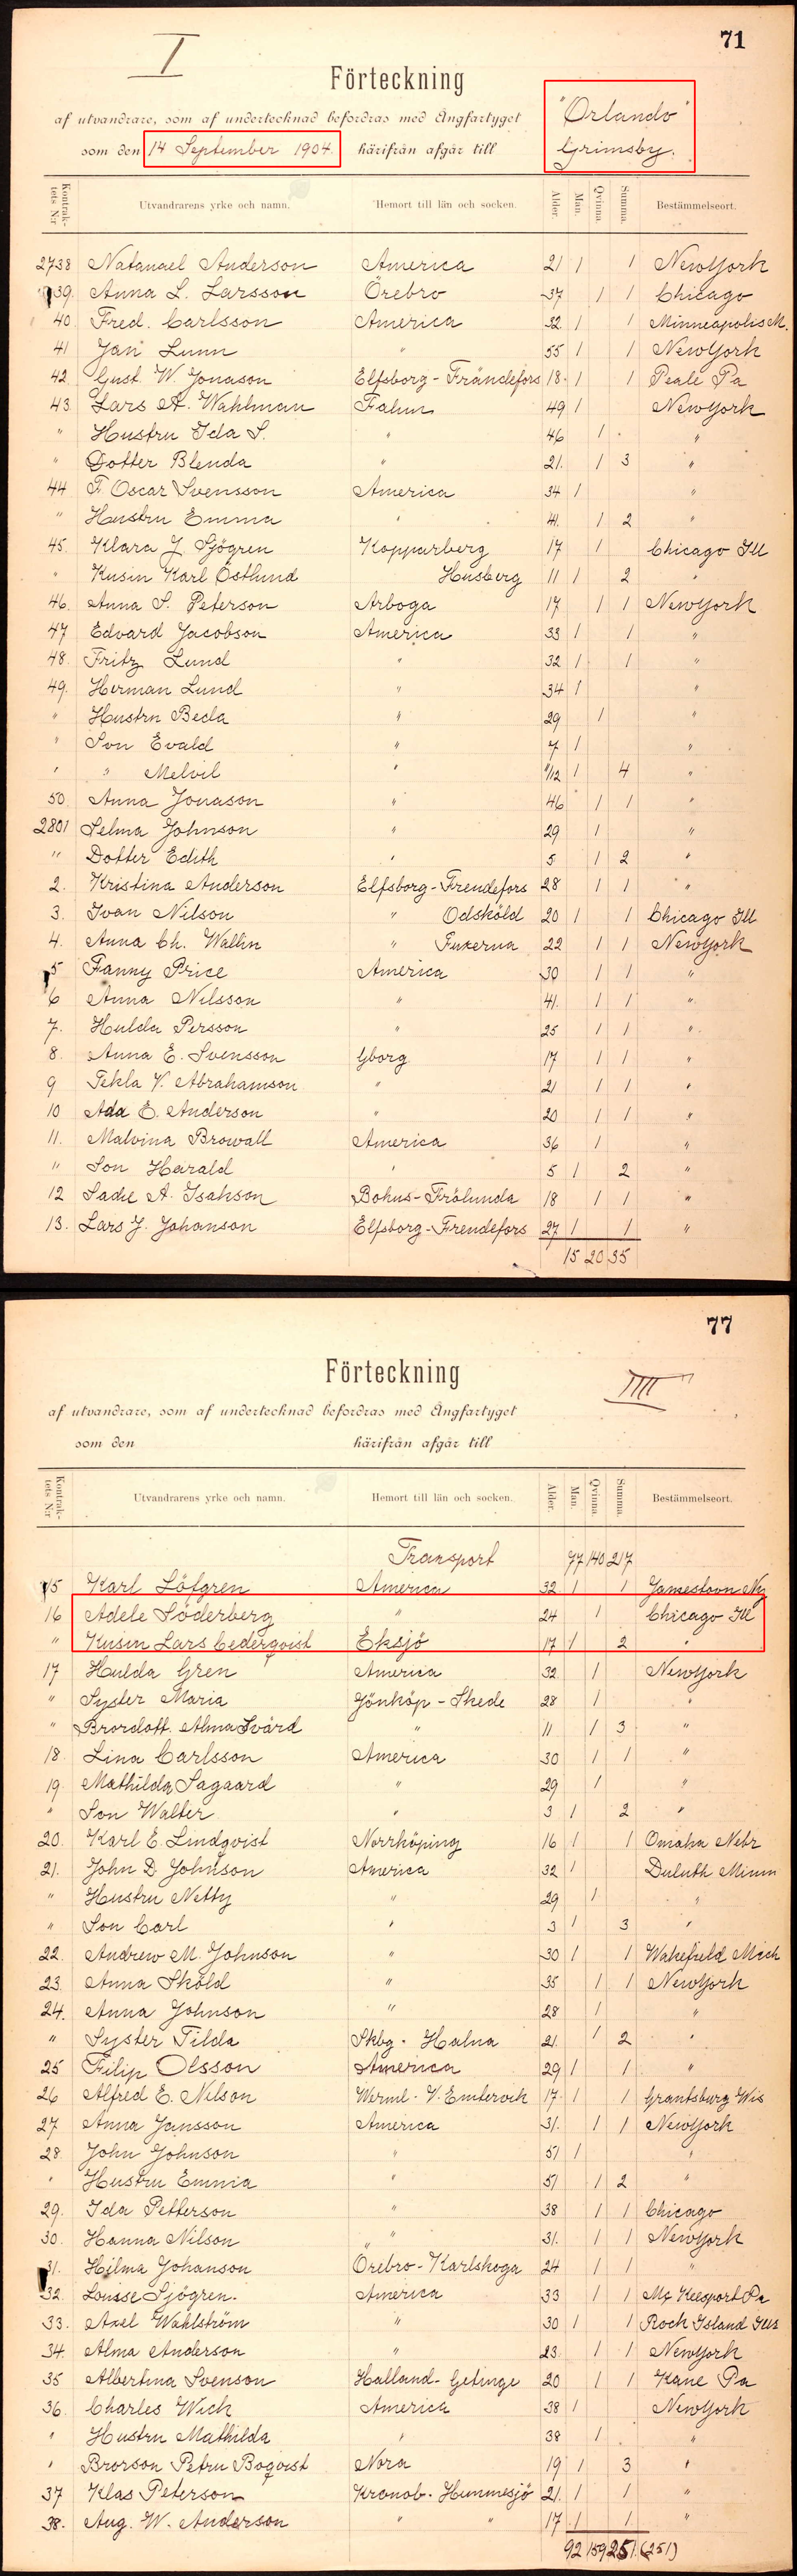 I
71
Förteckning
af utvandrare, som af undertecknad befordras med Ångfartyget "Orlando"
som den 14 September 1904. härifrån afgår till Grimsby.
Kontraktets N:r Utvandrarens yrke och namn. Hemort till län och socken. Ålder. Man. Qvinna. Summa. Bestämmelseort.
2738 Natanael Anderson America 21 1 1 NewYork
39. Anna L. Larsson Örebro 37 1 1 Chicago
40. Fred. Carlsson America 32 1 1 Minneapolis M.
41 Jan Lunn " 55 1 1 NewYork
42. Gust. W. Jonason Elfsborg-Frändefors 18 1 1 Peale Pa
43. Lars A. Wahlman Falun 49 1 NewYork
" Hustru Ida S. " 46 1 "
" Dotter Blenda " 21. 1 3 "
44 F. Oscar Svensson America 34 1 "
" Hustru Emma " 41. 1 2 "
45. Klara J. Sjögren Kopparberg 17 1 Chicago Ill
" Kusin Karl Östlund Husberg 11 1 2 "
46. Anna S. Peterson Arboga 17 1 1 NewYork
47 Edvard Jacobson America 33 1 1 "
48. Fritz Lund " 32 1 1 "
49. Herman Lund " 34 1 "
" Hustru Becla " 29 1 "
" Son Evald " 7 1 "
" " Melvil " /12 1 4 "
50. Anna Jonason " 46 1 1 "
2801 Selma Johnson " 29 1 "
" Dotter Edith " 5 1 2 "
2. Kristina Anderson Elfsborg-Frendefors 28 1 1 "
3. Ivan Nilson " Odsköld 20 1 1 Chicago Ill
4. Anna Ch. Wallin " Fuxerna 22 1 1 NewYork
5 Fanny Price America 30 1 1 "
6 Anna Nilsson " 41. 1 1 "
7. Hulda Persson " 25 1 1 "
8. Anna E. Svensson Gborg 17 1 1 "
9 Tekla V. Abrahamson " 21 1 1 "
10 Ada E. Anderson " 20 1 1 "
11. Malvina Browall America 36 1 "
" Son Harald " 5 1 2 "
12 Sadie A. Isakson Bohus-Frölunda 18 1 1 "
13. Lars J. Johanson Elfsborg-Frendefors 27 1 1 "
15 20 35
77
Förteckning
IIII
af utvandrare, som af undertecknad befordras med Ångfartyget
som den härifrån afgår till
Kontraktets N:r Utvandrarens yrke och namn. Hemort till län och socken. Ålder. Man. Qvinna. Summa. Bestämmelseort.
Transport 77 140 217
15 Karl Löfgren America 32 1 1 Jamestown Ny
16 Adele Söderberg " 24 1 Chicago Ill
" Kusin Lars Cederqvist Eksjö 17 1 2 "
17 Hulda Gren America 32 1 NewYork
" Syster Maria Jönköp-Skede 28 1 "
" Brordott. Alma Svärd " 11 1 3 "
18. Lina Carlsson America 30 1 1 "
19. Mathilda Sagaard " 29 1 "
" Son Walter " 3 1 2 "
20. Karl E. Lindqvist Norrköping 16 1 1 Omaha Nebr
21. John D. Johnson America 32 1 Duluth Minn
" Hustru Netty " 29 1 "
" Son Carl " 3 1 3 "
22. Andrew M. Johnson " 30 1 1 Wakefield Mich
23. Anna Sköld " 35 1 1 NewYork
24. Anna Johnson " 28 1 "
" Syster Tilda Skbg. Halna 21. 1 2 "
25 Filip Olsson America 29 1 1 "
26 Alfred E. Nilson Werml. V. Emtervik 17. 1 1 Grantsburg Wis
27 Anna Jansson America 31. 1 1 NewYork
28. John Johnson " 51 1 "
" Hustru Emmia " 51 1 2 "
29. Ida Petterson " 38 1 1 Chicago
30. Hanna Nilson " 31. 1 1 NewYork
31. Hilma Johanson Örebro-Karlskoga 24 1 1 "
32. Louise Sjögren. America 33 1 1 Mc Keesport Pa
33. Axel Wahlström " 30 1 1 Rock Island Ills
34. Alma Anderson " 23. 1 1 NewYork
35 Albertina Svenson Halland-Getinge 20 1 1 Kane Pa
36. Charles Wick America 38 1 NewYork
" Hustru Mathilda " 38 1 "
" Brorson Petru Boqvist Nora 19 1 3 "
37 Klas Peterson Kronob. Hemmesjö 21. 1 1 "
38. Aug. W. Anderson " " 17. 1 1 "
92 159 251. (251)